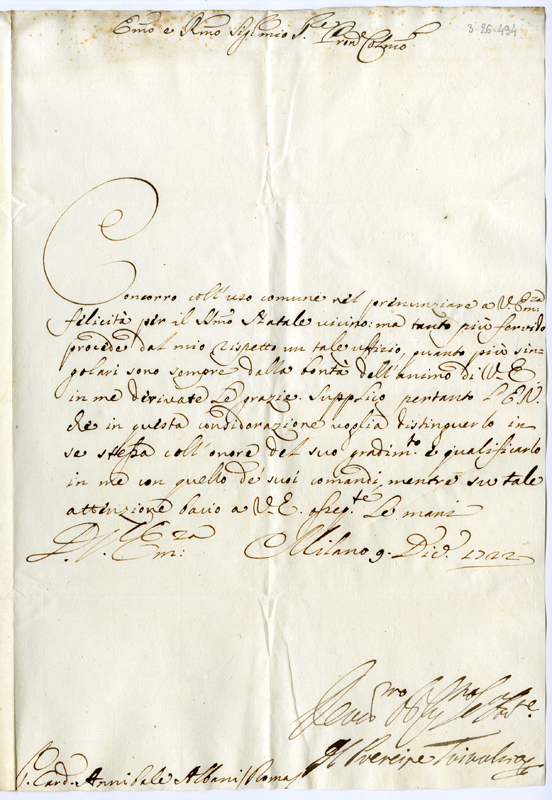 Em̃o e Rm̃o Sig.r mio P.re Pron.e Col.mo
3-26-494
Concorro coll'uso comune nel prenunziare a V. Em.za
felicità per il Sm̃o Natale vicino: ma tanto più fervido
procede dal mio rispetto un tale uffizio, quanto più sin-
golari sono sempre dalla bontà dell'animo di V. E.
in me derivate le grazie. Supplico pertanto l'E. V.
che in questa considerazione voglia distinguerlo in
se stessa coll'onore del suo gradim.to e qualificarlo
in me con quello de' suoi comandi, mentre su tale
attenzione bacio a V. E. osseq.te le mani
D. V. Em.za
Milano 9. Dic.e 1722
Il Prencipe Trivulzio
S. Card. Annibale Albani Roma